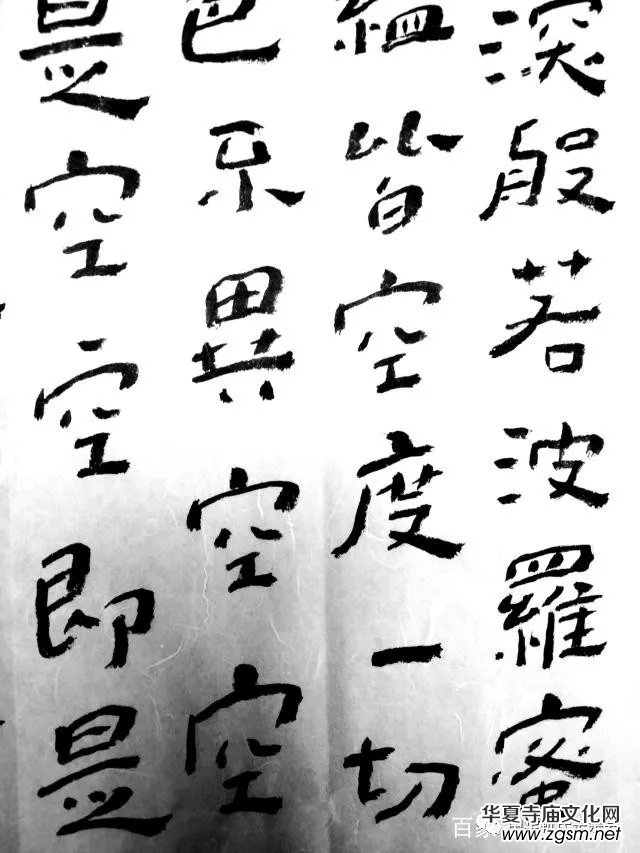 深般若波羅蜜
蘊皆空度一切
色不異空空
是空空即是
百家
华夏寺庙文化网
www.zgsm.net